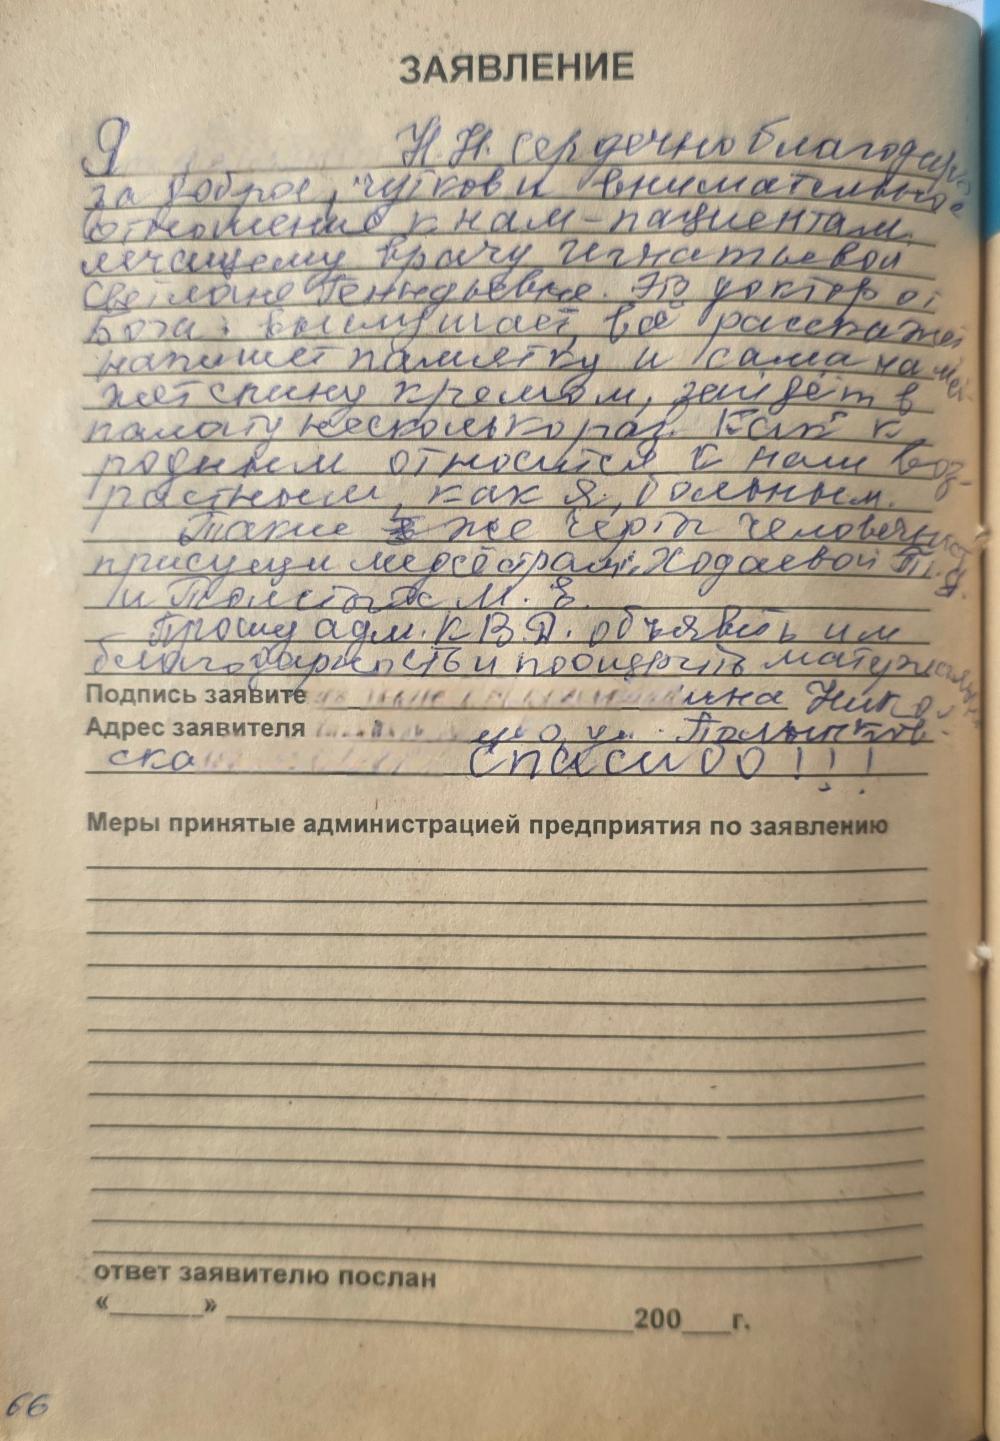 ЗАЯВЛЕНИЕ
Я Н.Н. сердечно благодарю
за доброе, чуткое и внимательное
отношение к нам - пациентам.
лечащему врачу Игнатьевой
Светлане Геннадьевне. Это доктор от
Бога: выслушает, всё расскажет
напишет памятку и сама нама-
жет спину кремом, зайдёт в
палату несколько раз. Как к
родным относится к нам воз-
растным, как я, больным.
Такие же черты человечност
присущи медсёстрам: Ходаевой Т.
и Толстых М. Е.
Прошу адм. К В.Д. объявить им
благодарность и поощрить материально
Подпись заявите ина Нико
Адрес заявителя ул.
ска Спасибо!!!
Меры принятые администрацией предприятия по заявлению
ответ заявителю послан
«______» ______ 200___г.
66